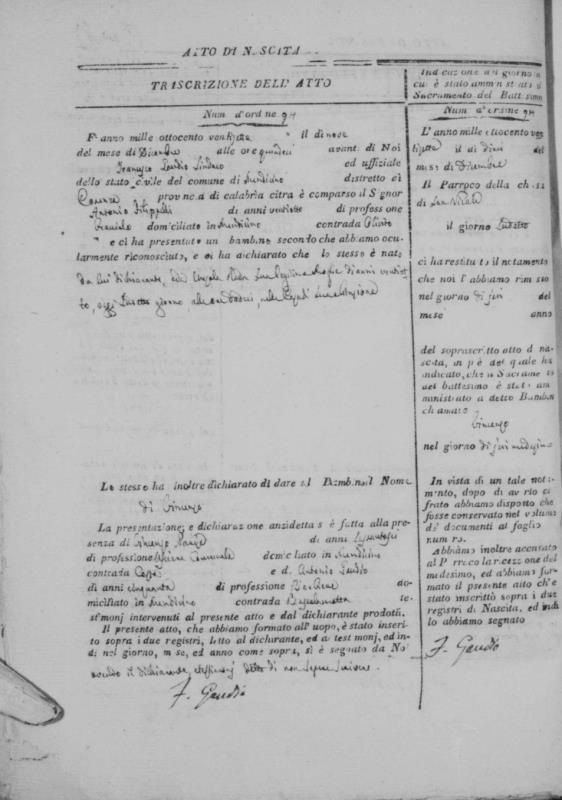 ATTO DI NASCITA
TRASCRIZIONE DELL' ATTO
Num d'ordine 94
L' anno mille ottocento ventisette il di nove
del mese di Dicembre alle ore quindeci avanti di Noi
Francesco Gaudio Sindaco ed uffiziale
dello stato civile del comune di Mendicino distretto di
Cosenza provincia di calabria citra è comparso il Signor
Antonio Filippelli di anni ventotto di professone
domiciliato in Mendicino contrada
e ci ha presentato un bambino secondo che abbiamo ocu-
larmente riconosciuto, e ci ha dichiarato che lo stesso è nato
da lui dichiarante, ed di anni ventiot
to, oggi giorno alle ore nella
Lo stesso ha inoltre dichiarato di dare al Bambino il Nome
di Vincenzo
La presentazione, e dichiarazione anzidetta s è fatta alla pre-
senza di Vincenzo di anni
di professione Comunale domiciliato in Mendicino
contrada e d. Antonio Gaudio
di anni cinquanta di professione do-
miciliato in Mendicino contrada te-
stimonj intervenuti al presente atto e dal dichiarante prodotti.
Il presente atto, che abbiamo formato all' uopo, è stato inseri-
to sopra i due registri, letto al dichiarante, ed a' testimonj, ed in-
di nel giorno, mese, ed anno come sopra, si è segnato da Noi
avendo il dichiarante, e testimonj detto di non sapere scrivere.
F. Gaudio
Indicazione del giorno in
cui è stato amministrato il
Sacramento del Battesimo
Num d'ordine 94
L' anno mille ottocento ven
tisette il di dieci del
mese di Dicembre
Il Parroco della chiesa
di San Nicola
il giorno
ci ha restituito il notamento
che noi l' abbiamo rimesso
nel giorno di jeri del
mese anno
del soprascritto atto di na-
scita, in piè del quale ha
indicato, che il Sacramento
del battesimo è stato am-
ministrato a detto Bambino
chiamato
Vincenzo
nel giorno di jeri medesimo
In vista di un tale nota-
mento, dopo di averlo ci-
frato abbiamo disposto che
fosse conservato nel volume
di documenti al foglio
numero.
Abbiamo inoltre accusato
al Parroco la ricezzione del
medesimo, ed abbiamo for-
mato il presente atto ch'è
stato inscritto sopra i due
registri di Nascita, ed indi
lo abbiamo segnato
F. Gaudio